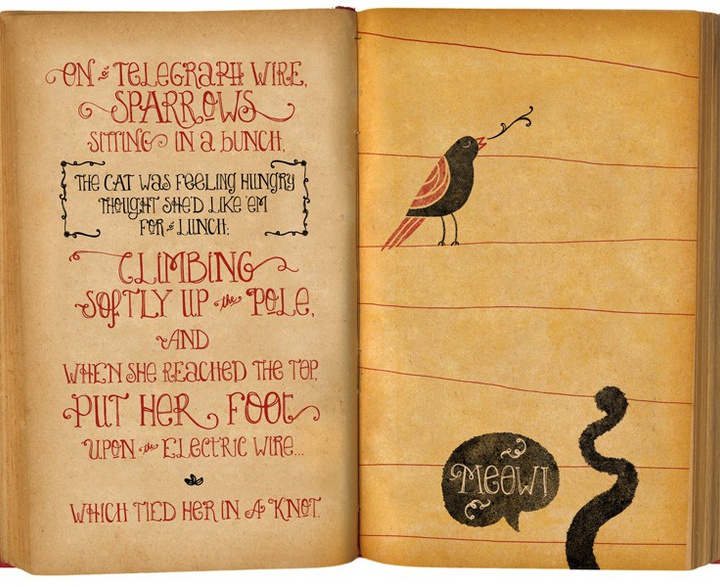 ON a TELEGRAPH WIRE,
SPARROWS
SITTING IN A BUNCH,
THE CAT WAS FEELING HUNGRY
THOUGHT SHE'D LIKE EM
FOR LUNCH;
CLIMBING
SOFTLY UP the POLE,
AND
WHEN SHE REACHED THE TOP,
PUT HER FOOT
UPON the ELECTRIC WIRE...
WHICH TIED HER IN A KNOT.
MEOW!